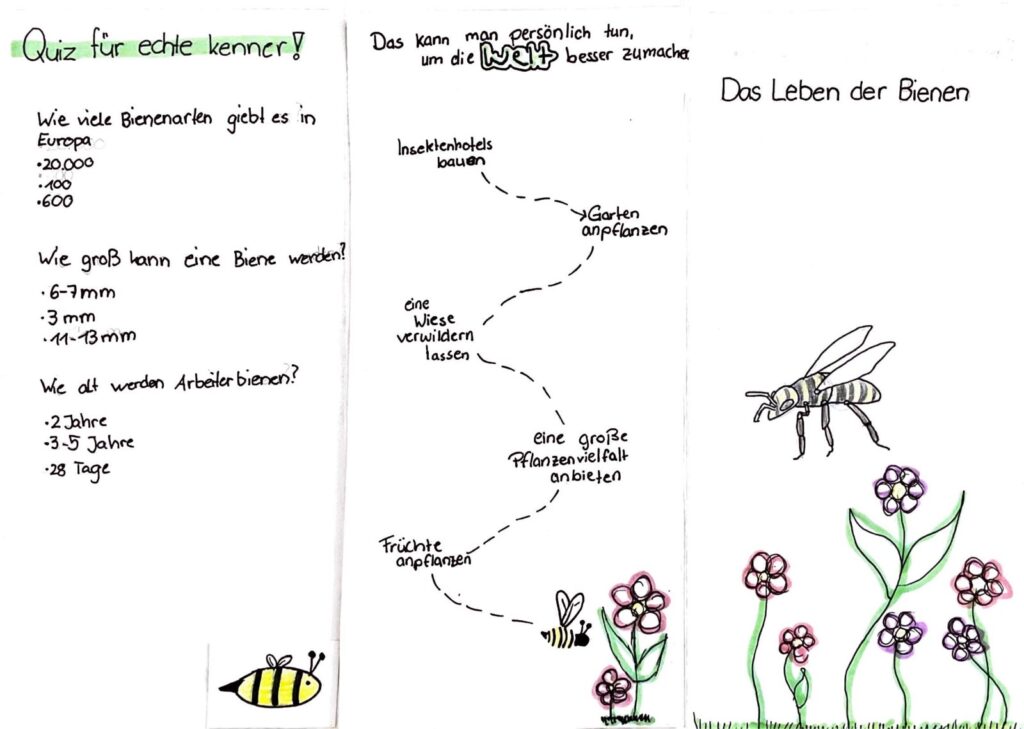 Quiz für echte kenner!
Wie viele Bienenarten giebt es in
Europa
·20.000
·100
·600
Wie groß kann eine Biene werden?
·6-7mm
·3 mm
·11-13mm
Wie alt werden Arbeiterbienen?
·2 Jahre
·3-5 Jahre
·28 Tage
Das kann man persönlich tun,
um die Welt besser zumachen
Insektenhotels
bauen
Garten
anpflanzen
eine
Wiese
verwildern
lassen
eine große
Pflanzenvielfalt
anbieten
Früchte
anpflanzen
Das Leben der Bienen